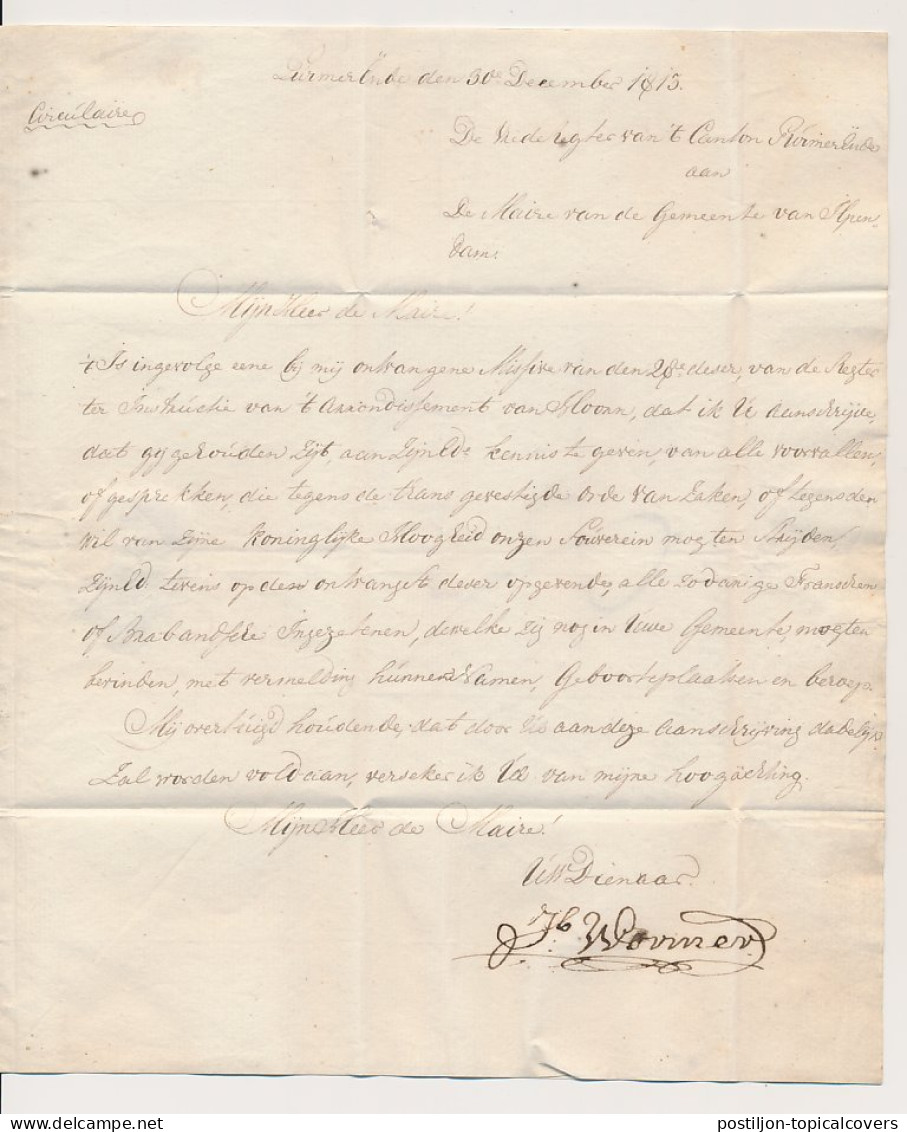 PurmerEnde den 30e December 1813.
Circulaire
De Vrede Regter van 't Canton PurmerEnde
aan
De Maire van de Gemeente van Ilpen-
dam.
Mijn Heer de Maire!
't Is ingevolge eene bij mij ontvangene Missive van den 28e deser, van de Regter
ter Instructie van 't Arrondissement van Hoorn, dat ik U aanschrijve,
dat gij gehouden zijt, aan Zijn Ed. kennis te geven, van alle voorvallen,
of gesprekken, die tegens de thans gevestigde orde van zaken, of tegens den
wil van Zijne Koninglijke Hoogheid onzen Souverein mogten strijden,
Zijn Ed. tevens op den ontvangst deser opgevende, alle zodanige Franschen
of Brabandsche Ingezetenen, dewelke zij nog in Uwe Gemeente, mogten
bevinden, met vermelding hunner Namen, Geboorteplaatsen en beroep.
Mij overtuigd houdende, dat door U aan deze aanschrijving dadelijk
zal worden voldaan, verseker ik U van mijne hoogachting.
Mijn Heer de Maire!
UW Dienaar.
Jb. Wormer
postiljon-topicalcovers